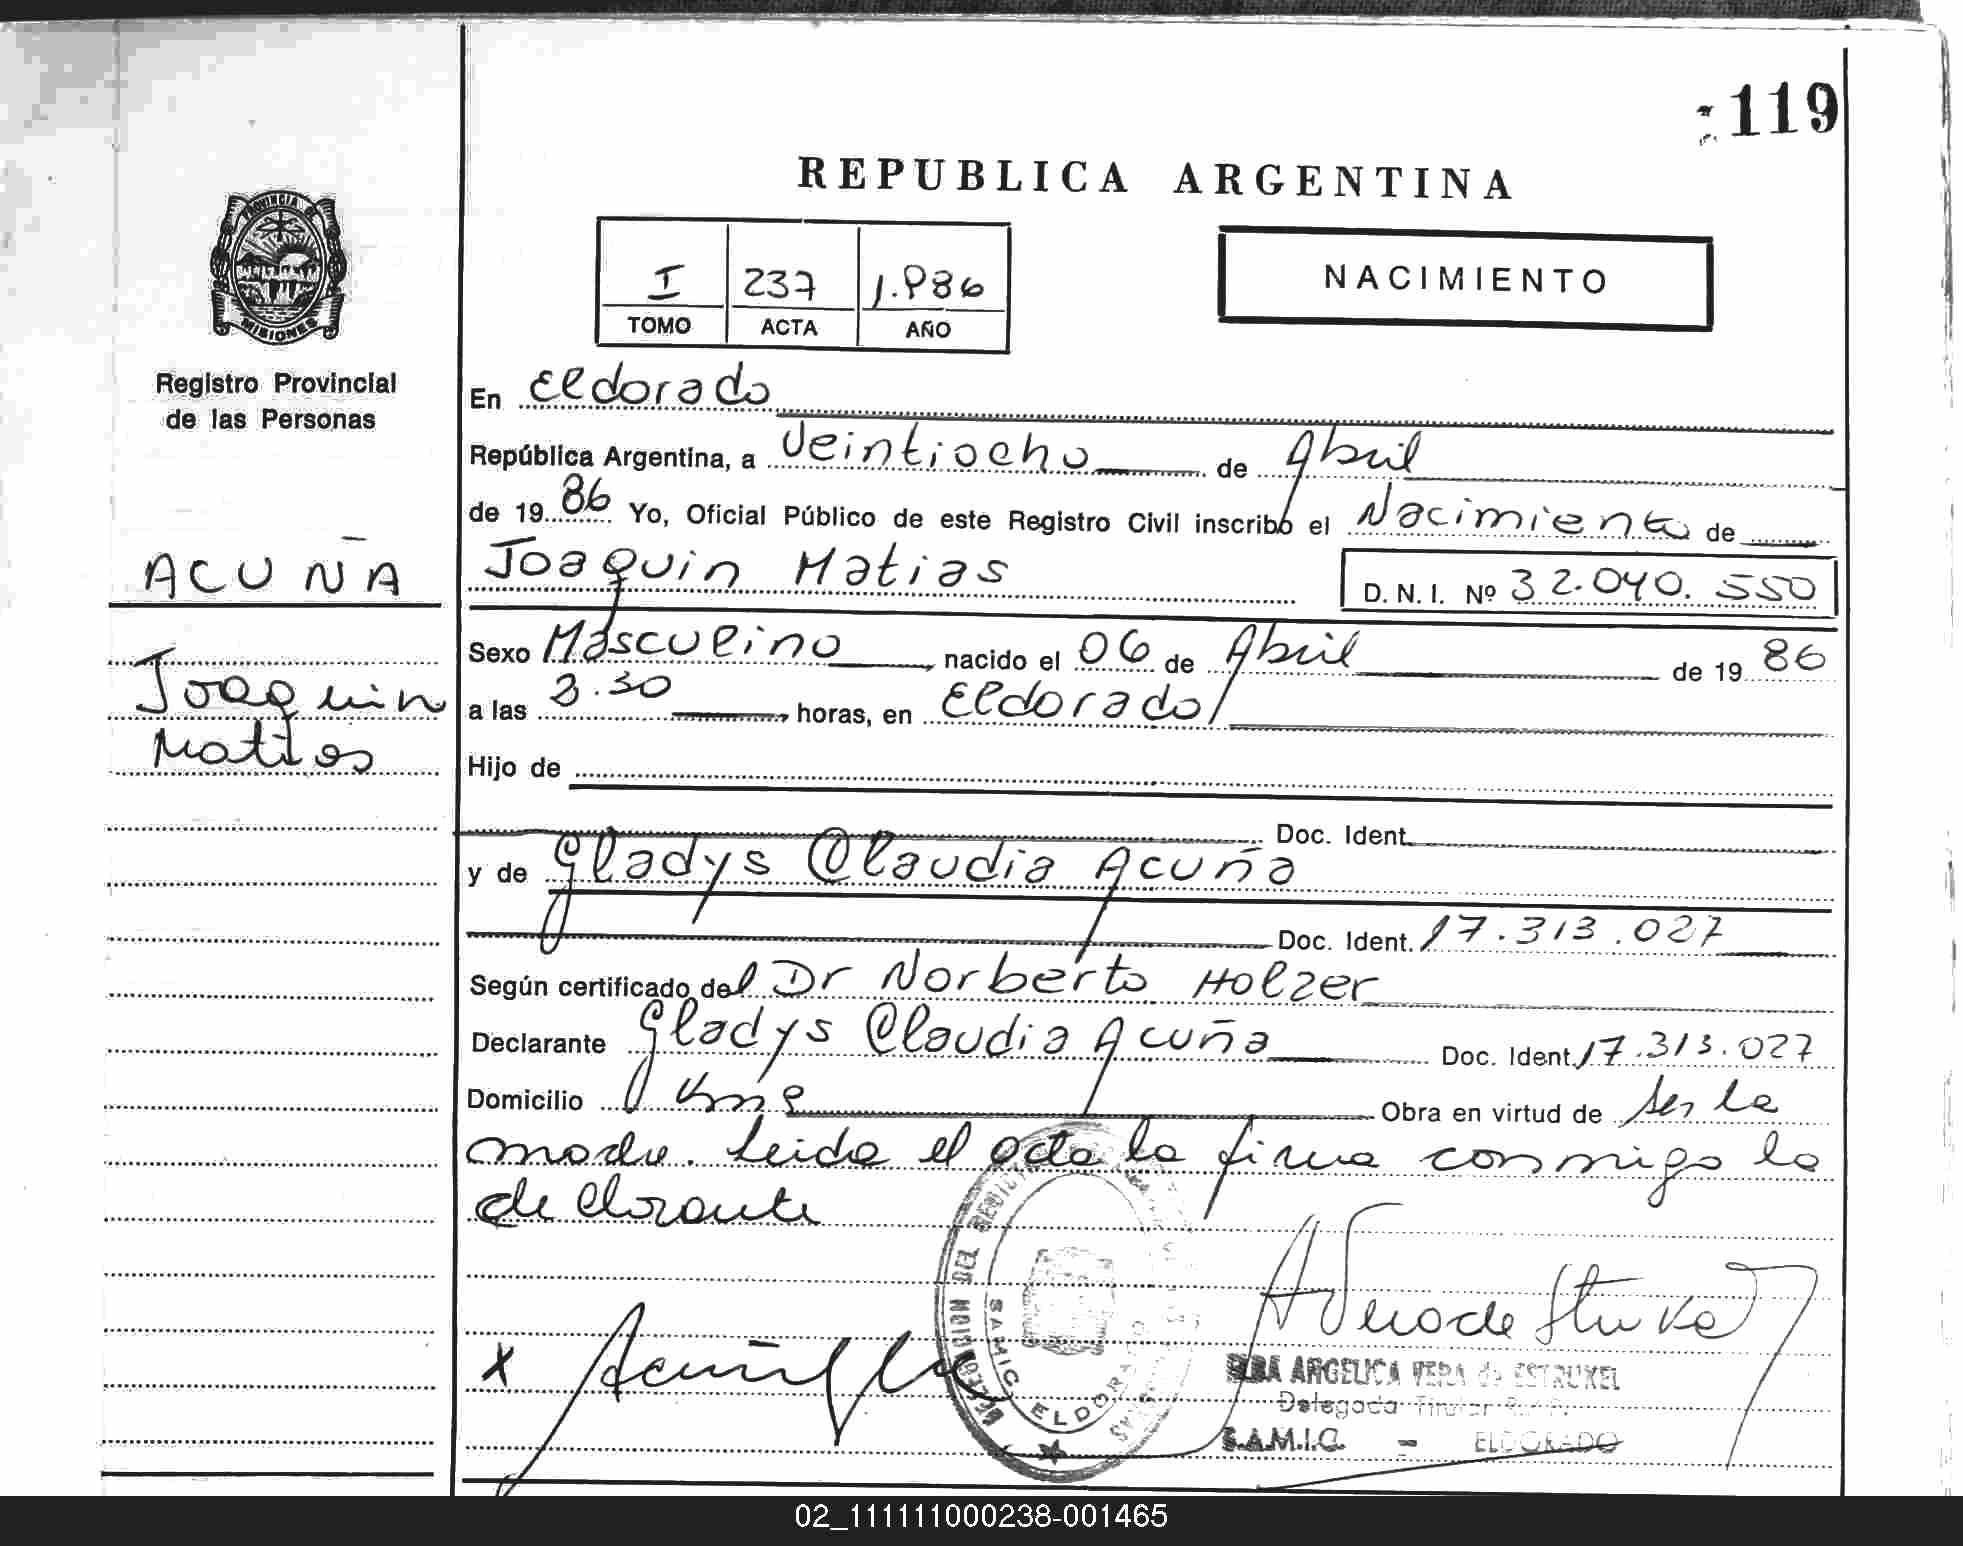 119
REPUBLICA ARGENTINA
PROVINCIA DE
MISIONES
I 237 1.986
TOMO ACTA AÑO
NACIMIENTO
Registro Provincial
de las Personas
ACUÑA
Joaquin
Matias
En Eldorado
República Argentina, a Veintiocho de Abril
de 19 86 Yo, Oficial Público de este Registro Civil inscribo el Nacimiento de
Joaquin Matias D. N. I. Nº 32.040.550
Sexo Masculino nacido el 06 de Abril de 19 86
a las 3.30 horas, en Eldorado
Hijo de
Doc. Ident.
y de Gladys Claudia Acuña
Doc. Ident. 17.313.027
Según certificado del Dr Norberto Holzer
Declarante Gladys Claudia Acuña Doc. Ident. 17.313.027
Domicilio Obra en virtud de ser la
madre. Leida el acta la firma conmigo la
declarante
X Acuña
ELBA ARGELICA VERA de ESTRUXEL
Delegada Titular
S.A.M.I.C. - ELDORADO
SAMIC ELDORADO
02_111111000238-001465